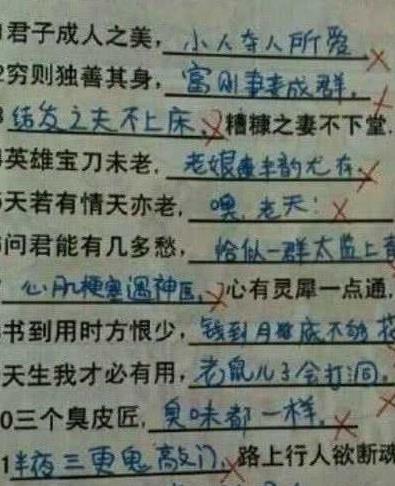 君子成人之美，小人夺人所爱
2穷则独善其身，富则妻妾成群。
3结发之夫不上床，糟糠之妻不下堂.
英雄宝刀未老，老娘丰韵尤存
天若有情天亦老，噢，老天！
问君能有几多愁，恰似一群太监上青
心肌梗塞遇神医，心有灵犀一点通，
书到用时方恨少，钱到月底不够花
天生我才必有用，老鼠儿子会打洞。
0三个臭皮匠，臭味都一样。
1半夜三更鬼敲门，路上行人欲断魂